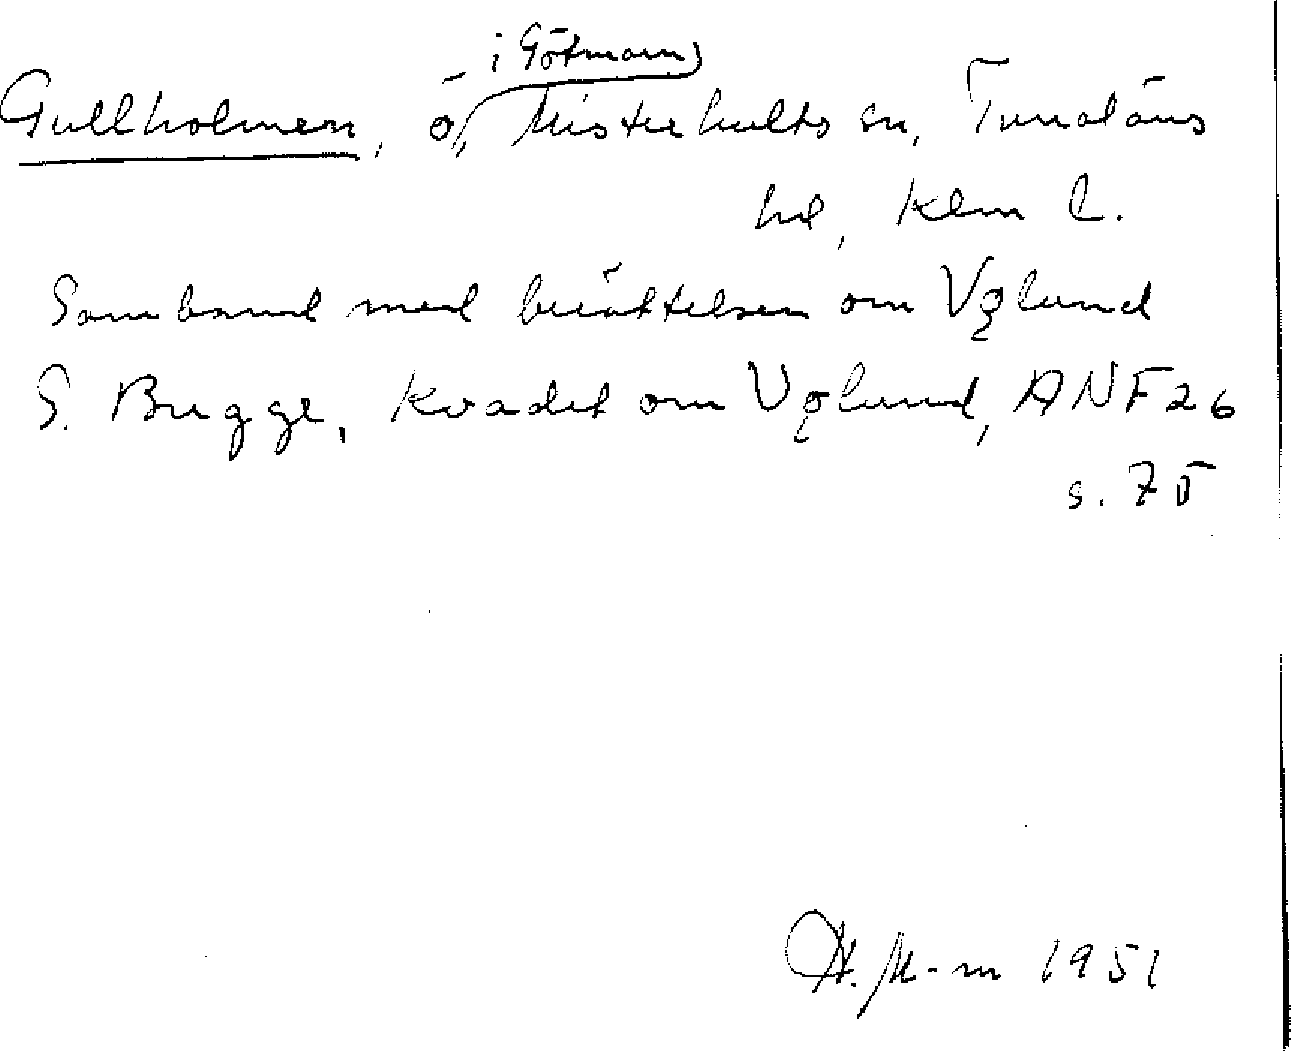 i Götmaren
Gullholmen, ö, Misterhults sn, Tunaläns
hd, Klm l.
Samband med berättelsen om Vǫlund
S. Bugge, Kvadet om Vǫlund, ANF 26
s. 75
H. M-m 1951